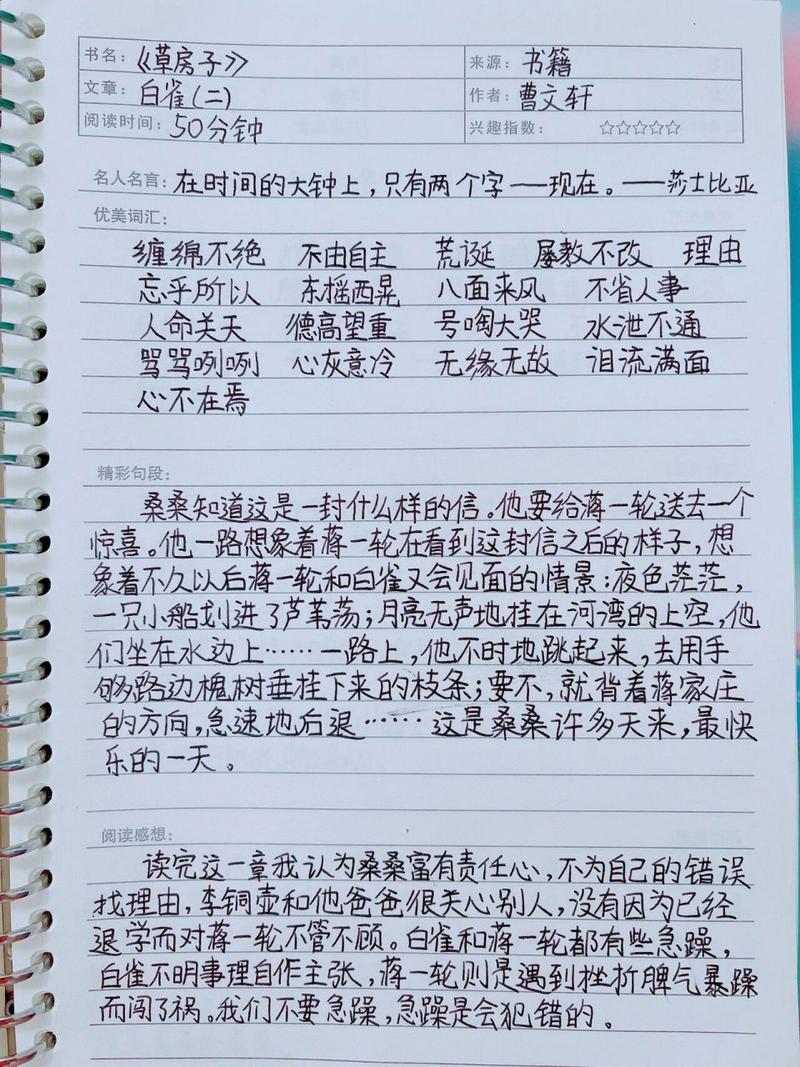 书名：《草房子》 来源：书籍
文章：白雀(二) 作者：曹文轩
阅读时间：50分钟 兴趣指数：☆☆☆☆☆
名人名言：在时间的大钟上，只有两个字——现在。——莎士比亚
优美词汇：
缠绵不绝 不由自主 荒诞 屡教不改 理由
忘乎所以 东摇西晃 八面来风 不省人事
人命关天 德高望重 号啕大哭 水泄不通
骂骂咧咧 心灰意冷 无缘无故 泪流满面
心不在焉
精彩句段：
桑桑知道这是一封什么样的信。他要给蒋一轮送去一个
惊喜。他一路想象着蒋一轮在看到这封信之后的样子，想
象着不久以后蒋一轮和白雀又会见面的情景：夜色茫茫，
一只小船划进了芦苇荡；月亮无声地挂在河湾的上空，他
们坐在水边上……一路上，他不时地跳起来，去用手
够路边槐树垂挂下来的枝条；要不，就背着蒋家庄
的方向，急速地后退……这是桑桑许多天来，最快
乐的一天。
阅读感想：
读完这一章我认为桑桑富有责任心，不为自己的错误
找理由，李铜壶和他爸爸很关心别人，没有因为已经
退学而对蒋一轮不管不顾。白雀和蒋一轮都有些急躁，
白雀不明事理自作主张，蒋一轮则是遇到挫折脾气暴躁
而闯了祸。我们不要急躁，急躁是会犯错的。